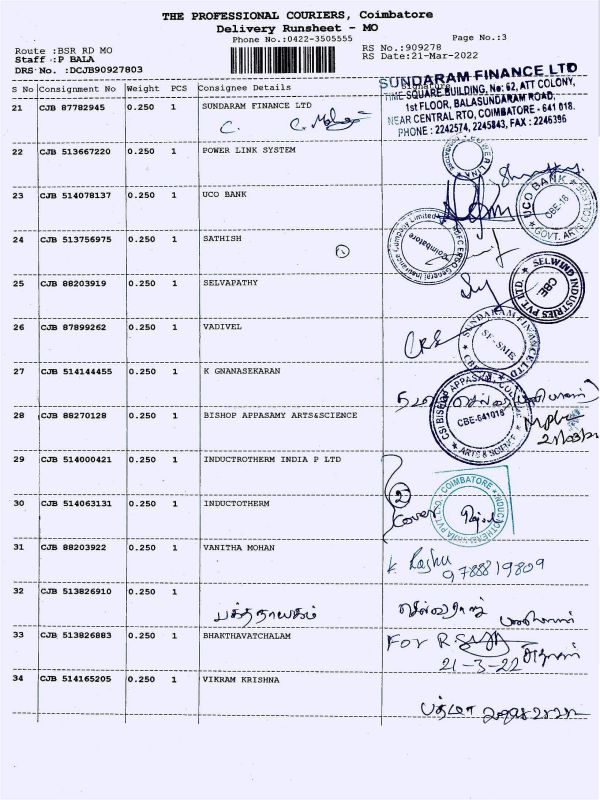 THE PROFESSIONAL COURIERS, Coimbatore
Delivery Runsheet - MO
Phone No.:0422-3505555
Page No.:3
Route :BSR RD MO
RS No.:909278
Staff :P BALA
RS Date:21-Mar-2022
DRS No. :DCJB90927803
S No Consignment No Weight PCS Consignee Details Signature
SUNDARAM FINANCE LTD
TIME SQUARE BUILDING, No: 62, ATT COLONY,
1st FLOOR, BALASUNDARAM ROAD,
NEAR CENTRAL RTO, COIMBATORE - 641 018.
PHONE : 2242574, 2245843, FAX : 2246396
21 CJB 87782945 0.250 1 SUNDARAM FINANCE LTD
22 CJB 513667220 0.250 1 POWER LINK SYSTEM
POWER LINK
23 CJB 514078137 0.250 1 UCO BANK
UCO BANK
CBE-18
GOVT. ARTS COLLEGE
24 CJB 513756975 0.250 1 SATHISH
1
HDFC ERGO General Insurance Company Limited
Coimbatore
25 CJB 88203919 0.250 1 SELVAPATHY
SELWIND INDUSTRIES PVT. LTD.
CBE
26 CJB 87899262 0.250 1 VADIVEL
SUNDARAM FINANCE LTD
SF-SME
CBE
27 CJB 514144455 0.250 1 K GNANASEKARAN
28 CJB 88270128 0.250 1 BISHOP APPASAMY ARTS&SCIENCE
CSI BISHOP APPASAMY COLLEGE
CBE-641018
ARTS & SCIENCE
29 CJB 514000421 0.250 1 INDUCTROTHERM INDIA P LTD
30 CJB 514063131 0.250 1 INDUCTOTHERM
2
Cover
COIMBATORE
31 CJB 88203922 0.250 1 VANITHA MOHAN
9788819809
32 CJB 513826910 0.250 1
33 CJB 513826883 0.250 1 BHAKTHAVATCHALAM
For R.
21-3-22
34 CJB 514165205 0.250 1 VIKRAM KRISHNA
பத்மா